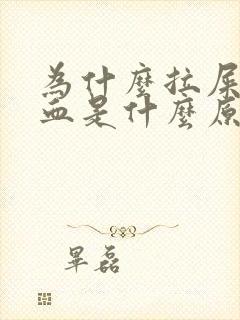 為什麼拉屎
血是什麼原
畢磊